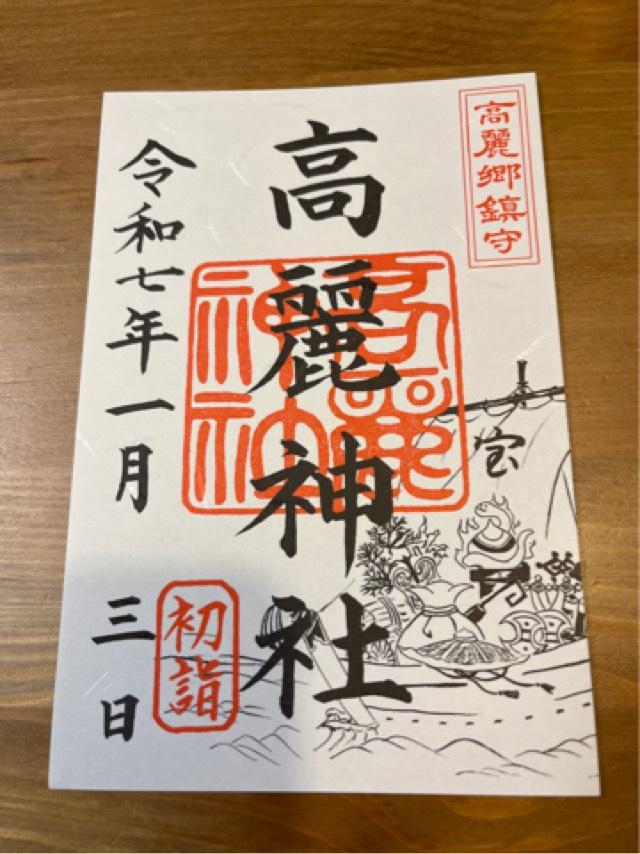 高麗郷鎮守
宝
高麗神社
高麗神社
令和七年一月三日
初詣